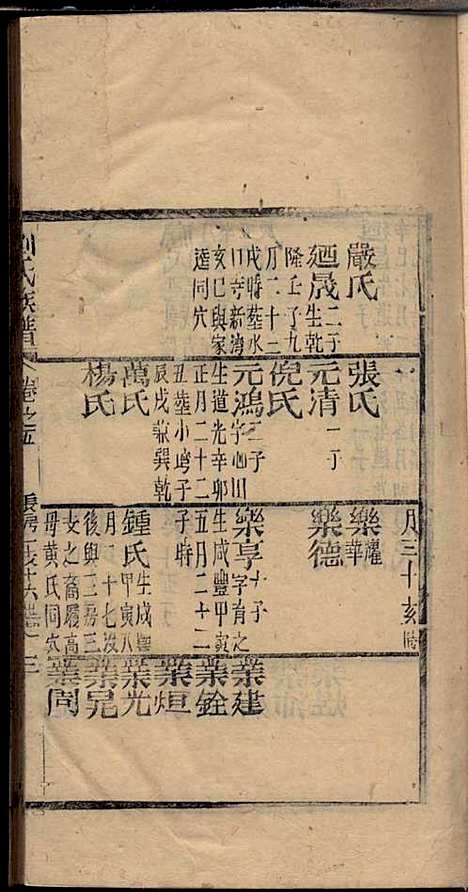 嚴氏
迺晟 二子
生乾隆壬子九月二十三戌時塟水口寺新灣亥巳與家
蓬同穴
一
張氏
元清 一子
倪氏
元鴻 三子
字心田
生道光辛卯正月二十二丑塟小塆子辰戌兼巽乾
萬氏
楊氏
月三十亥時
樂耀
樂華
樂德
樂享 十子
字育之
生咸豐甲寅五月二十二子時
鍾氏
生咸豐甲寅八月二十七没後與二房三支之裔履高母黃氏同穴
業建
業銓
業烜
業光
業晃
業周
劉氏族譜 卷之五 長房一支十六